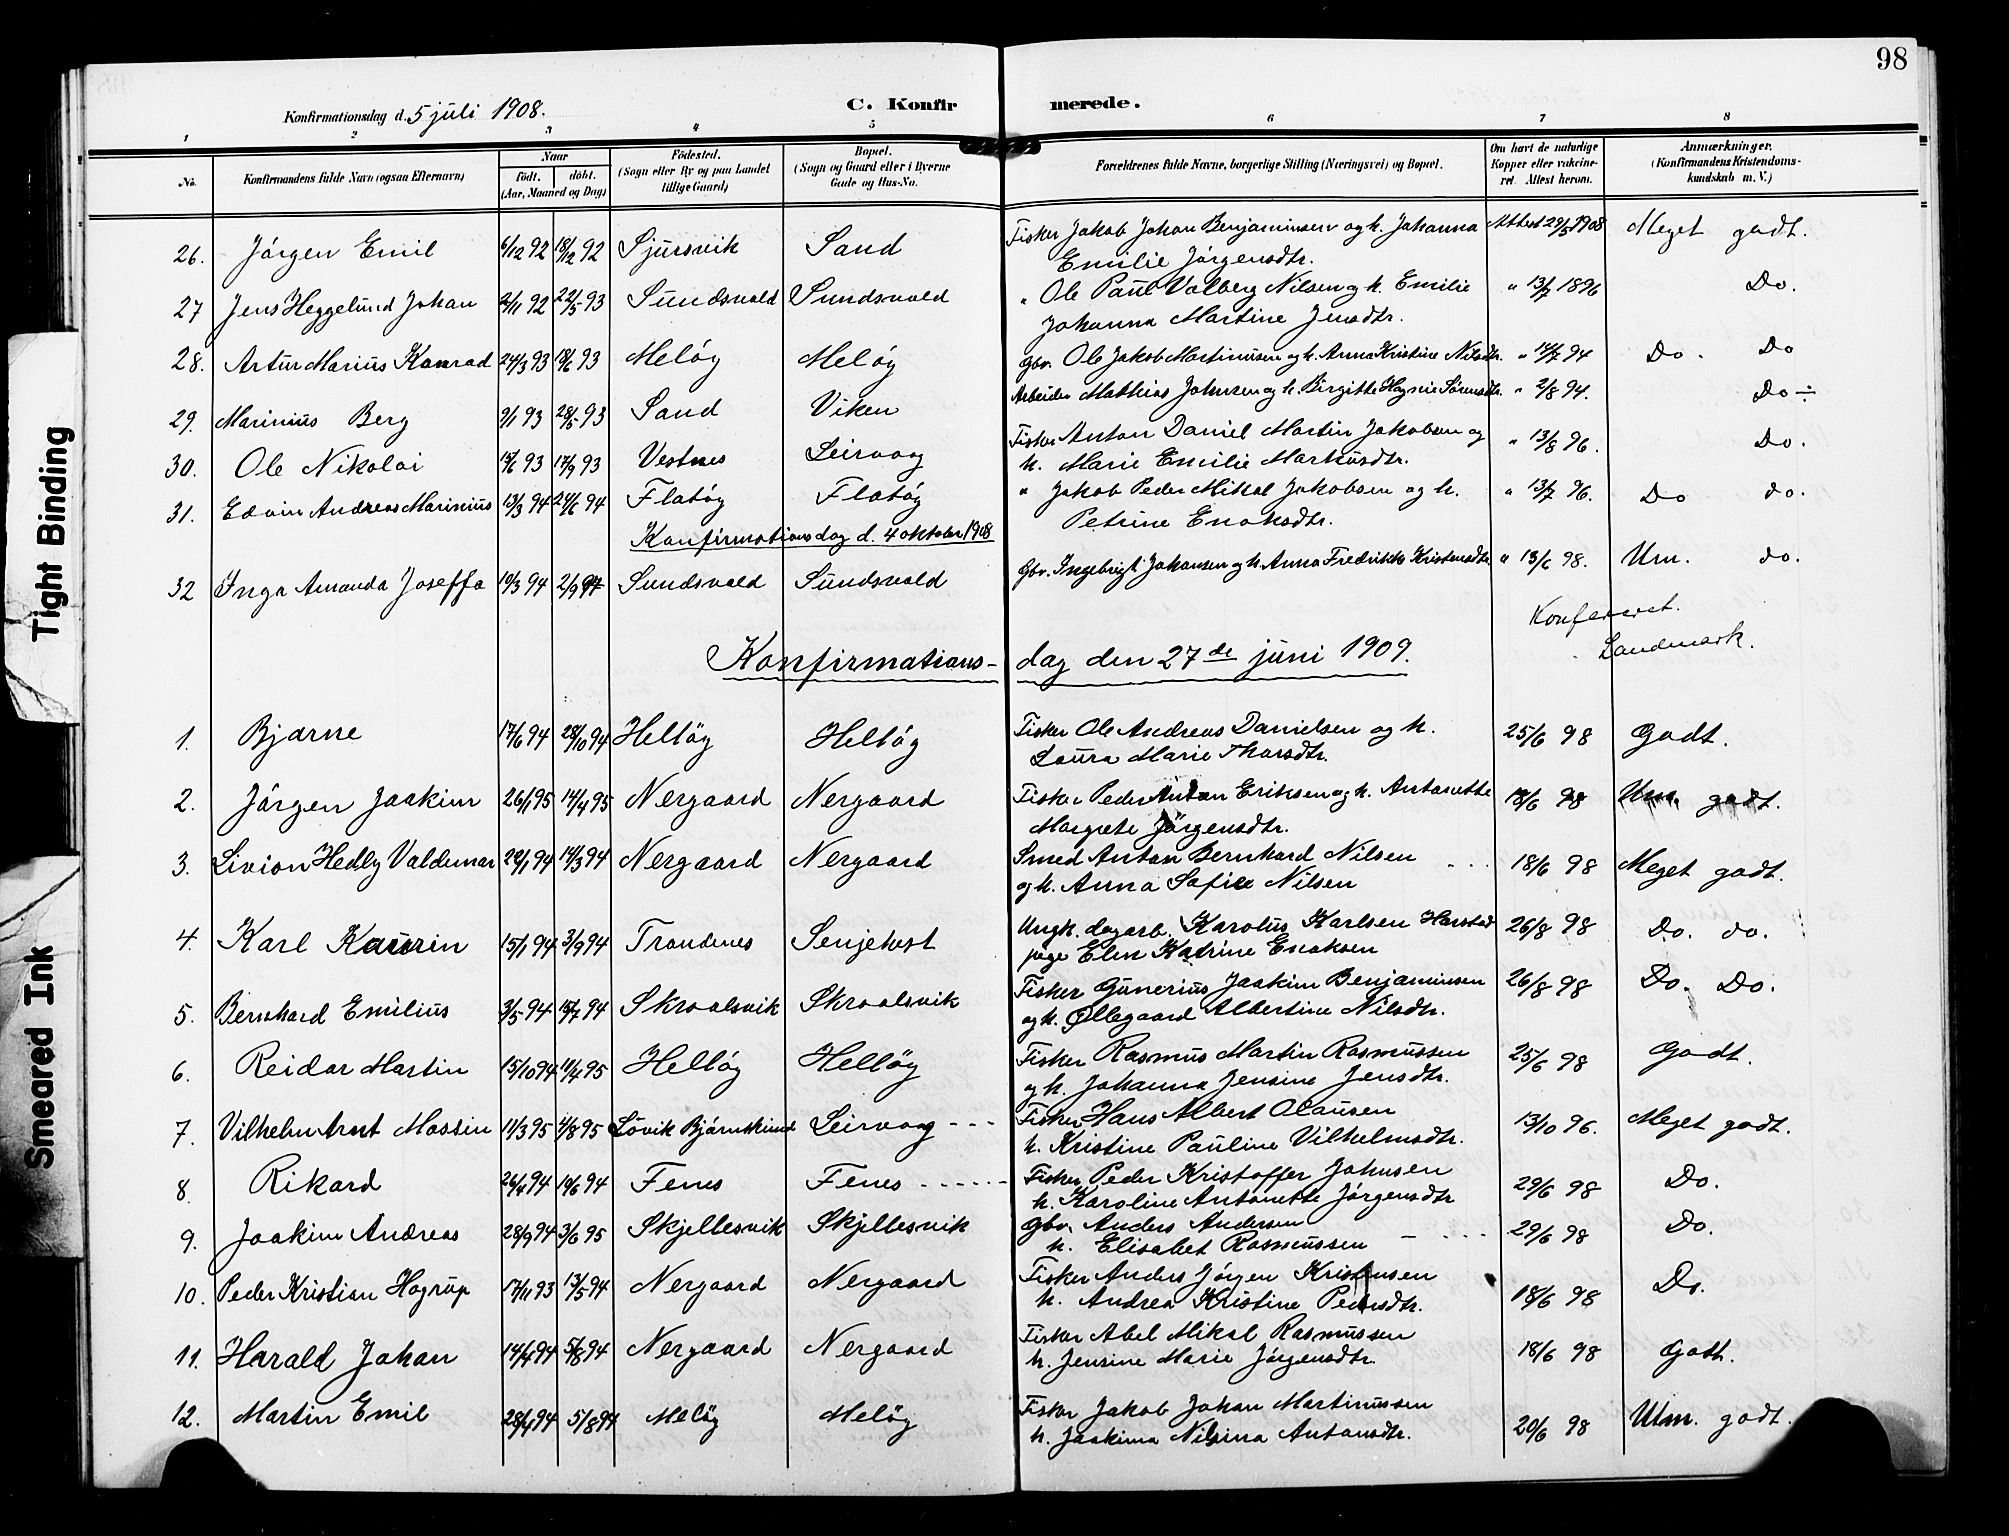 98
Konfirmationsdag d. 5 juli 1908.
C. Konfir merede.
1 2 3 4 5 6 7 8
No. Konfirmandens fulde Navn (ogsaa Efternavn) Naar født. døbt. (Aar, Maaned og Dag) Fødested. (Sogn eller By og paa Landet tillige Gaard) Bopæl. (Sogn og Gaard eller i Byerne Gade og Hus-No. Forældrenes fulde Navne, borgerlige Stilling (Næringsvei) og Bopæl. Om havt de naturlige Kopper eller vakcineret. Attest herom. Anmærkninger. (Konfirmandens Kristendomskundskab m. V.)
26. Jørgen Emil 6/12 92 18/12 92 Sjursvik Sand Fisker Jakob Johan Benjaminsen og h. Johanna Attest 29/5 1908 Meget godt.
Emilie Jørgensdtr.
27 Jens Heggelund Johan 2/11 92 22/5 93 Sundsvold Sundsvold " Ole Paul Valberg Nilsen og h. Emilie " 13/7 1896 Do.
Johanna Martine Jensdtr.
28. Artur Marius Konrad 24/3 93 18/6 93 Meløy Meløy Gbr. Ole Jakob Martinusen og h. Anna Kristine Nilsdtr. " 14/7 94 Do. Do
29. Marinius Berg 9/1 93 28/5 93 Sand Viken Arbeider Mathias Johnsen og h. Birgitte Hagnie Sørensdtr. " 2/8 94. Do ÷
30. Ole Nikolai 93 17/9 93 Vestnes Leirvog Fisker Anton Daniel Martin Jakobsen og " 13/8 96. Do.
h. Marie Emilie Markusdtr.
31. Edvin Andreas Marinius 13/3 94 24/6 94 Flatøy Flatøy " Jakob Peder Mikal Jakobsen og h. " 13/7 96. Do do.
Petrine Enoksdtr.
Konfirmationsdag d. 4 oktober 1908
32 Inga Amanda Joseffa 10/3 94 2/9 94 Sundsvold Sundsvold Gbr. Ingebrigt Johansen og h. Anna Fredrikke Kristensdtr. " 13/6 98. Um. do.
Konfereret.
Landmark.
Konfirmations- dag den 27de juni 1909.
1. Bjarne 17/6 94 28/10 94 Helløy Helløy Fisker Ole Andreas Danielsen og h. 25/6 98 Godt.
Laura Marie Thorsdtr.
2. Jørgen Joakim 26/1 95 14/4 95 Nergaard Nergaard Fisker Peder Anton Eriksen og h. Antonette 18/6 98 Um. godt.
Margrete Jørgensdtr.
3. Livion Hedly Valdemar 22/1 94 14/3 94 Nergaard Nergaard Smed Anton Bernhard Nilsen 18/6 98 Meget godt.
og h. Anna Sofie Nilsen
4. Karl Kaurin 15/1 94 3/9 94 Trondenes Senjehest Ungk. dagarb. Karolus Karlsen Harstad 26/8 98 Do. do.
pige Elen Katrine Enoksen
5. Bernhard Emilius 3/5 94 15/7 94 Skroalsvik Skroalsvik Fisker Gunerius Joakim Benjaminsen 26/8 98 Do. Do.
og h. Øllegaard Albertine Nilsdtr.
6. Reidar Martin 15/10 94 11/4 95 Helløy Helløy Fisker Rasmus Martin Rasmussen 25/6 98 Godt.
og h. Johanna Jensine Jensdtr.
7. Vilhelm Arnt Mossin 11/3 95 11/8 95 Løvik Bjørnskind Leirvog Fisker Hans Albert Olausen 13/10 96. Meget godt.
h. Kristine Pauline Vilhelmsdtr.
8. Rikard 26/4 94 10/6 94 Fenes Fenes Fisker Peder Kristoffer Johnsen 29/6 98 Do.
h. Karoline Antonette Jørgensdtr
9. Joakim Andreas 28/9 94 3/6 95 Skjellesvik Skjellesvik Gbr. Anders Andersen 29/6 98 Do.
h. Elisabet Rasmussen
10. Peder Kristian Hogrup 17/11 93 13/5 94 Nergaard Nergaard Fisker Anders Jørgen Kristensen 18/6 98 Do.
h. Andrea Kristine Pedersdtr.
11. Harald Johan 14/4 94 5/8 94 Nergaard Nergaard Fisker Abel Mikal Rasmussen 18/6 98 Godt.
h. Jensine Marie Jørgensdtr.
12. Martin Emil 28/4 94 5/8 94 Meløy Meløy Fisker Jakob Johan Martinussen 20/6 98 Utm. godt.
h. Joakima Nilsina Antonsdtr.
Tight Binding
Smeared Ink